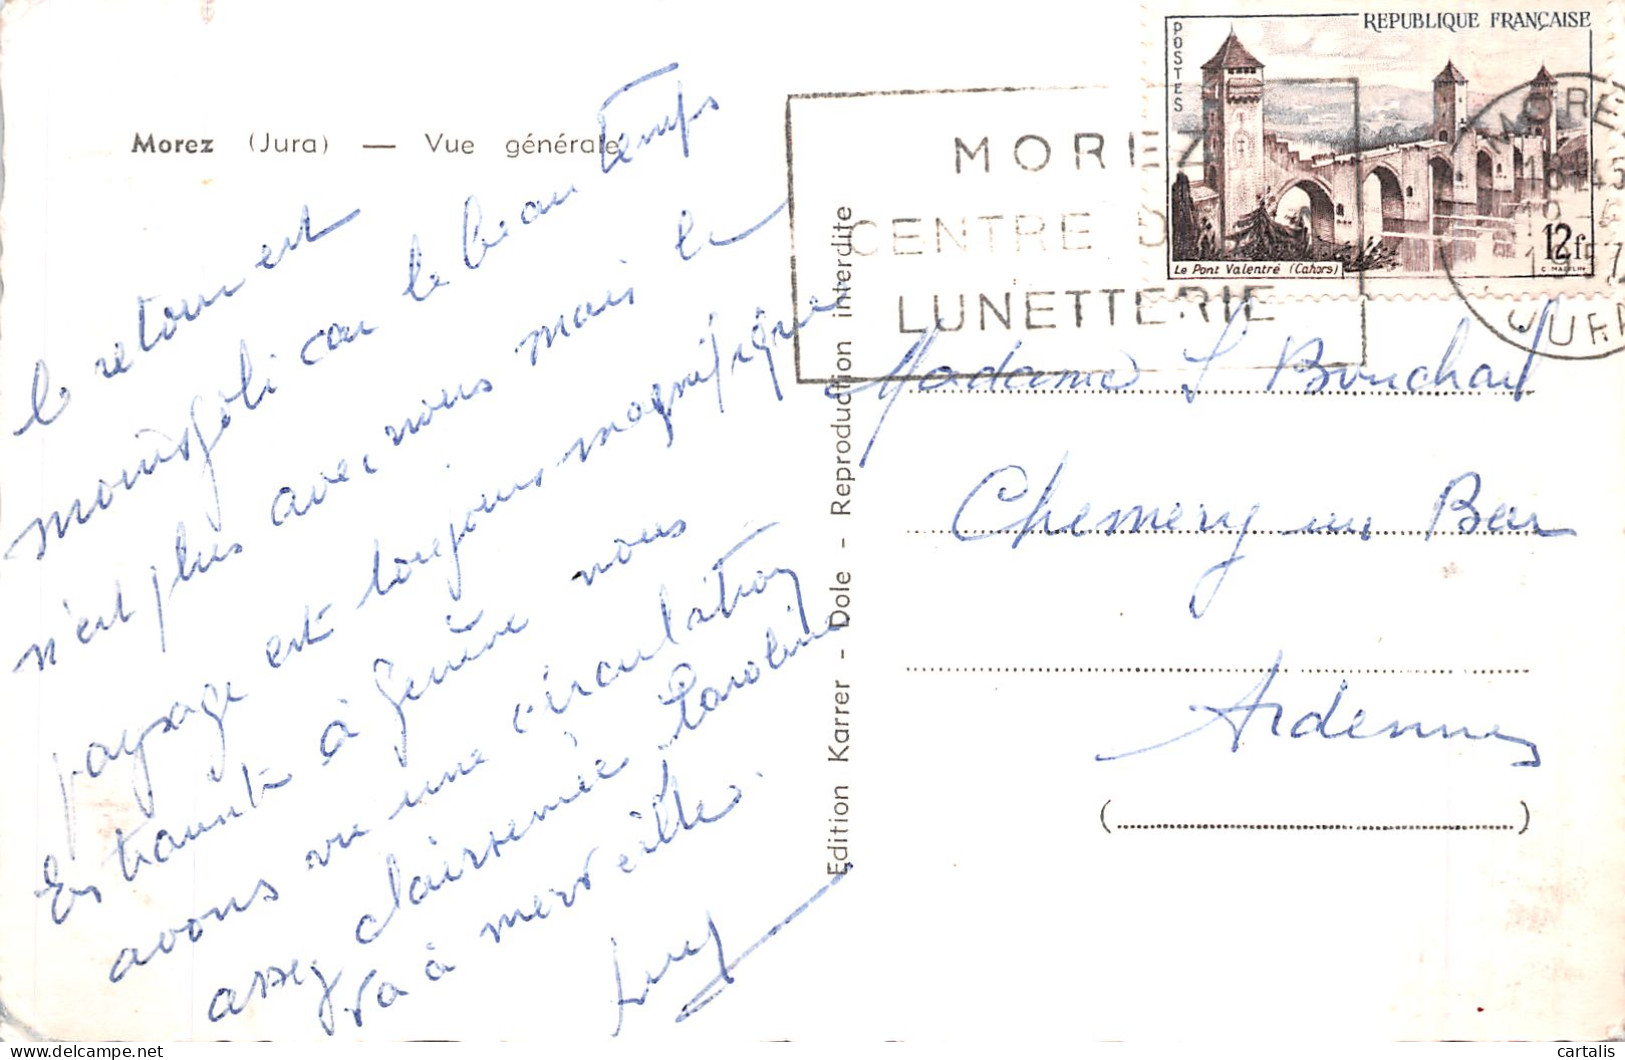 Morez (Jura) — Vue générale
le retour est
moins joli car le beau temps
n'est plus avec nous mais le
paysage est toujours magnifique
En traversant à Genève nous
avons vu une circulation
assez clairsemée. Caroline
va à merveille.
Edition Karrer - Dole - Reproduction interdite
MOREZ
CENTRE D
LUNETTERIE
POSTES
REPUBLIQUE FRANÇAISE
Le Pont Valentré (Cahors)
12f
MOREZ
18-45
1957
JURA
Madame S Bouchard
Chemery sur Bar
Ardennes
(..........)
cartalis